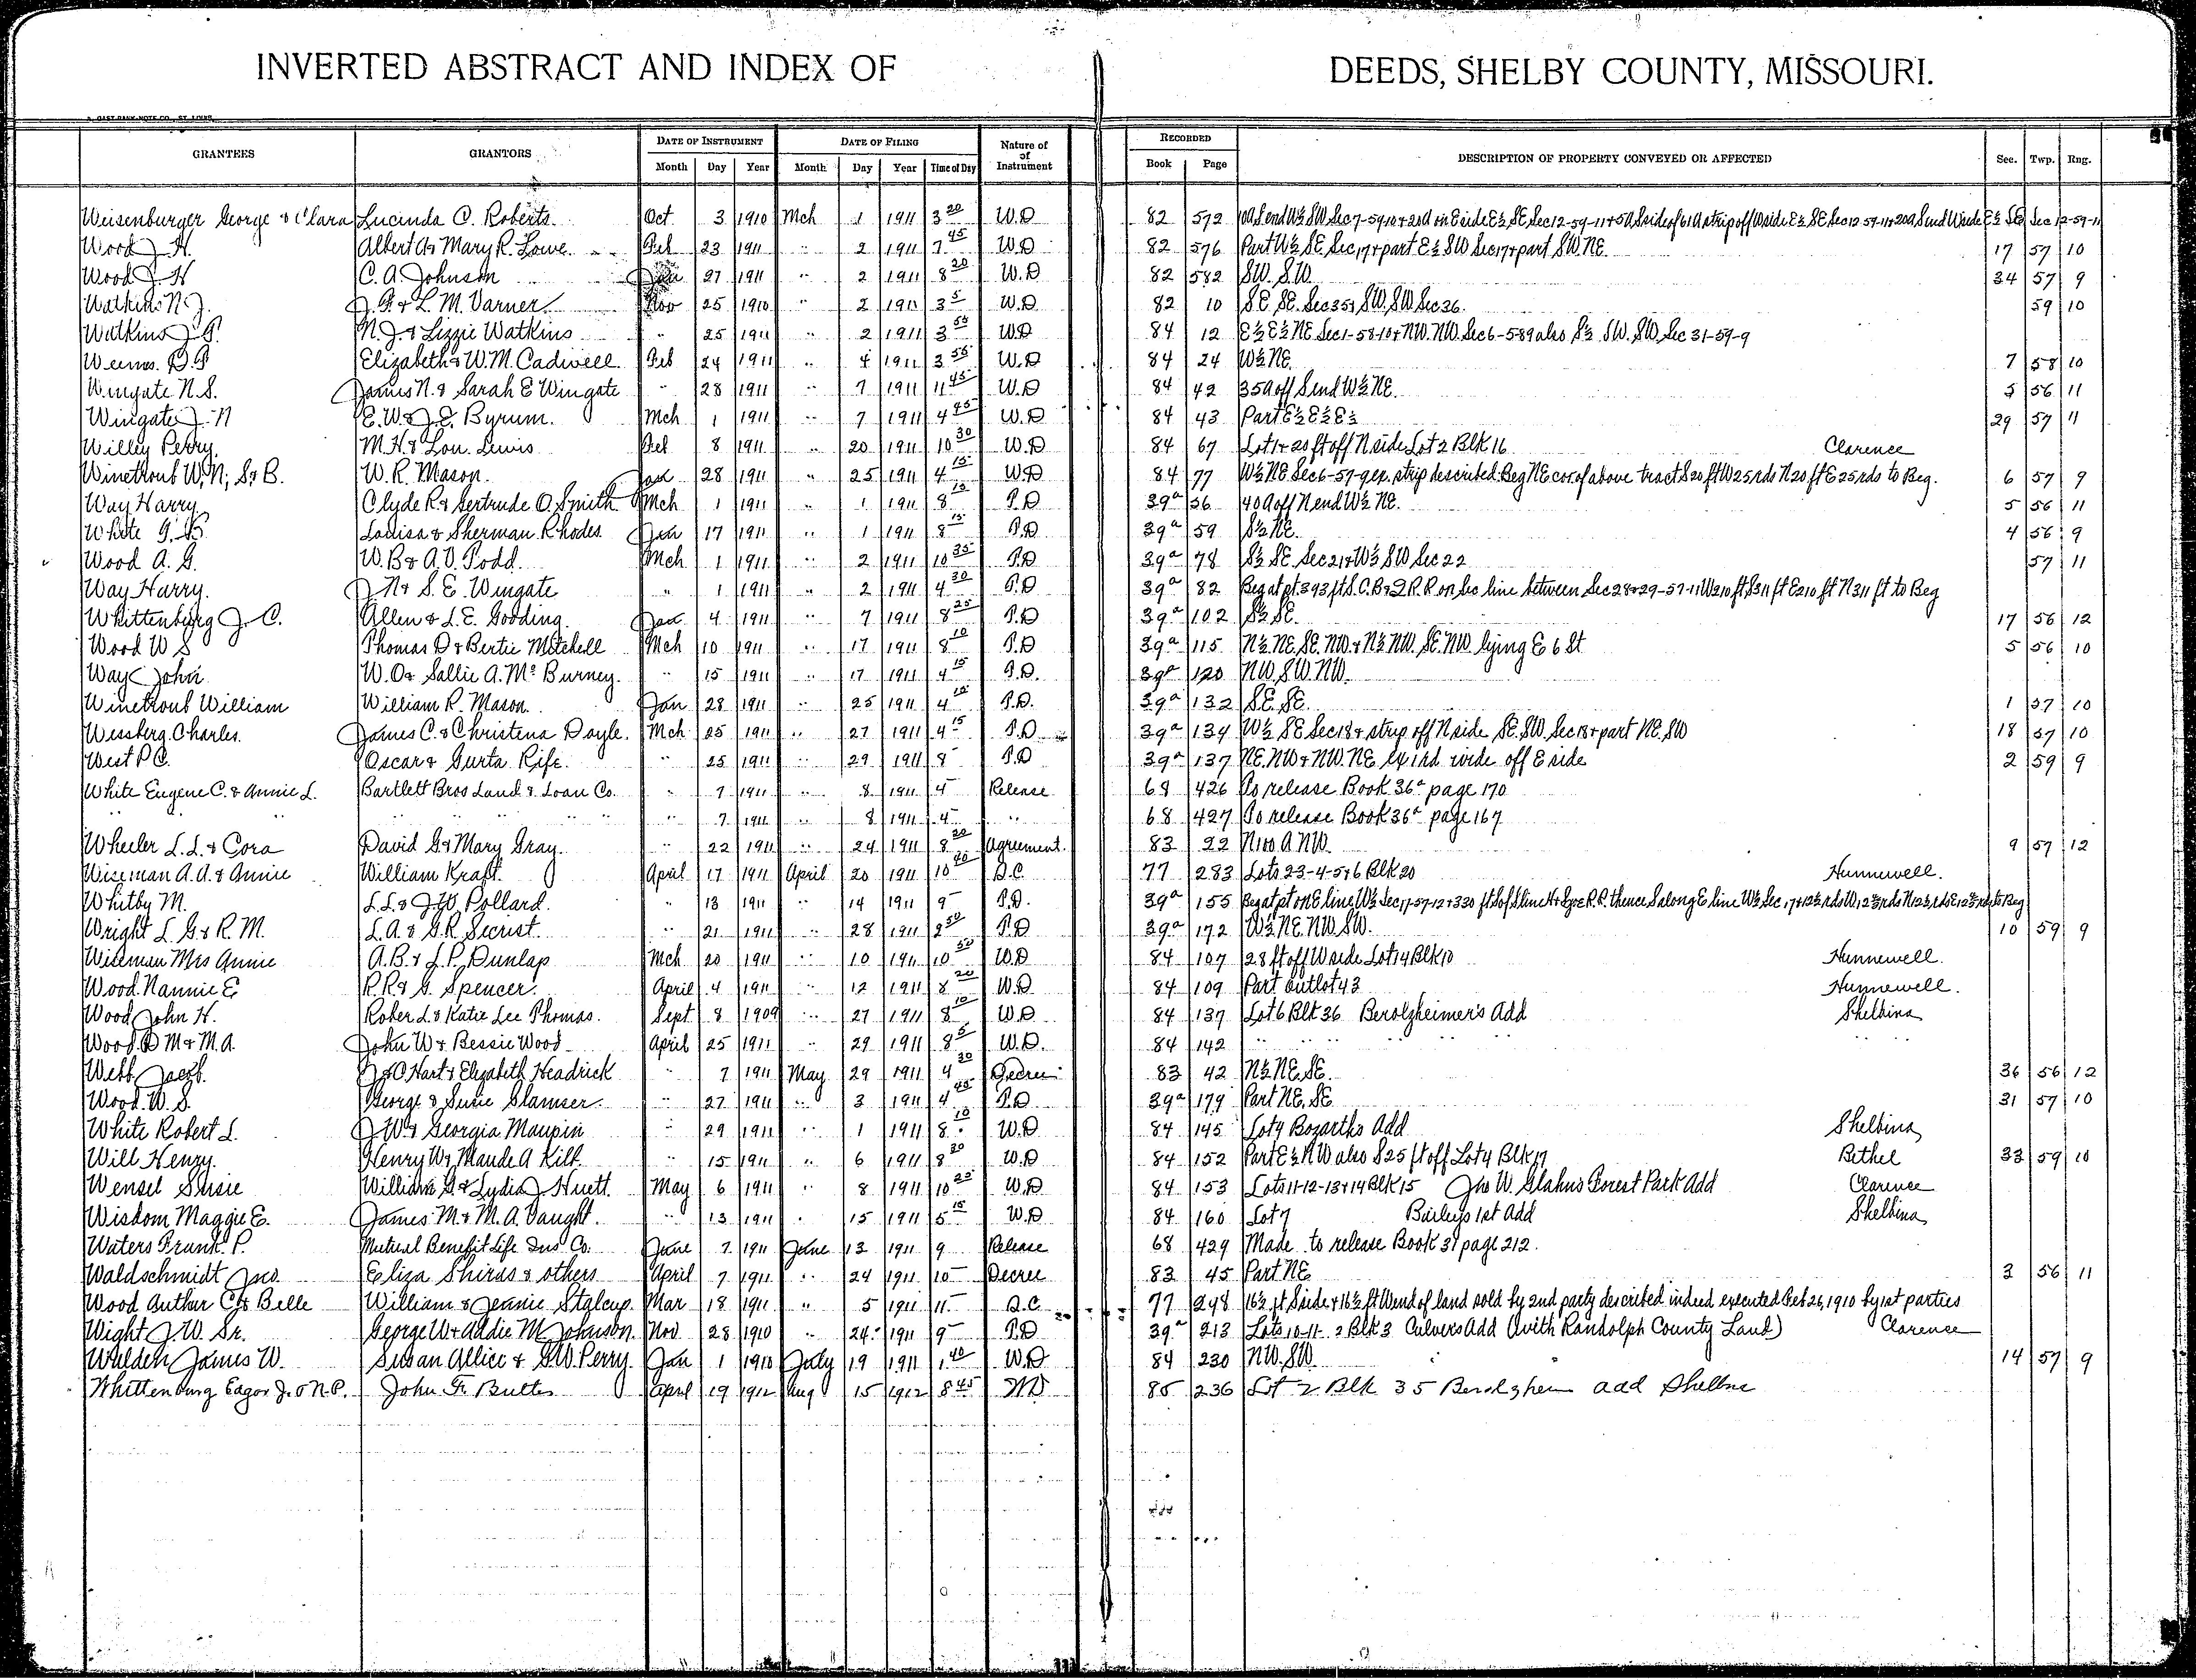 INVERTED ABSTRACT AND INDEX OF DEEDS, SHELBY COUNTY, MISSOURI.
GRANTEES GRANTORS DATE OF INSTRUMENT DATE OF FILING Nature of Instrument RECORDED DESCRIPTION OF PROPERTY CONVEYED OR AFFECTED Sec. Twp. Rng.
Month Day Year Month Day Year Time of Day Book Page
Weisenburger George & Clara Lucinda C. Roberts Oct 3 1910 Mch 1 1911 3 20 W.D 82 572
Wood J. H. Albert A & Mary R. Lowe Feb 23 1911 " 2 1911 45 W.D 82 576 Part W½ SE Sec 17 & part E½ SW Sec 17 & part SW NE 17 57 10
Wood J. H C. A. Johnson Jan 27 1911 " 2 1911 8 20 W.D 82 582 SW. SW. 34 57 9
Watkins N. J. J. G. & L. M. Varner Nov 25 1910 " 2 1911 3 5 W.D 82 10 SE SE. Sec 35 & SW. SW Sec 36. 59 10
Watkins J. G. N. J. & Lizzie Watkins " 25 1911 " 2 1911 3 W.D 84 12 E½ E½ NE Sec 1-58-10 & NW. NW. Sec 6-58 9 also S½ SW. SW. Sec 31-59-9
Weems. Elizabeth & W. M. Cadwell Feb 24 1911 " 4 1911 3 55 W.D 84 24 W½ NE. 7 58 10
Wingate N. S. James N. & Sarah E Wingate " 28 1911 " 7 1911 11 45 W.D 84 42 35 A off S end W½ NE. 5 56 11
Wingate J. N E. W. & J. E. Byrum. Mch 1 1911 " 7 1911 4 45 W.D 84 43 Part E½ E½ E½ 29 57 11
Willey Perry. M. H. & Lou. Lewis Feb 8 1911 " 20 1911 10 30 W.D 84 67 Lot 1 & 20 ft off N side Lot 2 Blk 16 Clarence
Winetroub W, N; S, & B. W. R. Mason. Jan 28 1911 " 25 1911 4 15 W.D 84 77 W½ NE Sec 6-57-9 strip described Beg NE cor of above tract S 20 ft W 25 rds N 20 ft E 25 rds to Beg. 6 57 9
Way Harry. Clyde R. & Gertrude O. Smith Mch 1 1911 " 1 1911 8 15 T.D 39a 56 40 A off N end W½ NE. 5 56 11
White G. B. Louisa & Sherman Rhodes Jan 17 1911 " 1 1911 8 15 T.D 39a 59 S½ NE. 4 56 9
Wood A. G. W. B & A. V. Todd. Mch 1 1911 " 2 1911 10 35 T.D 39a 78 S½ SE. Sec 21 & W½ SW Sec 22 57 11
Way Harry. J. N & S. E. Wingate " 1 1911 " 2 1911 4 30 T.D 39a 82 Beg at pt. 393 ft S. C. B & Q R. R. on Sec line between Sec 28 & 29-57-11 W 210 ft S 311 ft E 210 ft N 311 ft to Beg
Whittenburg J. C. Allen & L. E. Gooding. Jan 4 1911 " 7 1911 8 25 T.D 39a 102 S½ SE. 17 56 12
Wood W S Thomas D & Bertie Mitchell Mch 10 1911 " 17 1911 8 10 T.D 39a 115 N½ NE. SE. NW. & N½ NW. SE. NW lying E 6 St 5 56 10
Way John W. O & Sallie A. Mc Burney. " 15 1911 " 17 1911 4 15 T.D. 39a 120 NW. SW. NW.
Winetroub William William R. Mason Jan 28 1911 " 25 1911 4 15 T.D. 39a 132 SE. SE. 1 57 10
Wessberg. Charles. James C. & Christena Doyle. Mch 25 1911 " 27 1911 4 15 T.D 39a 134 W½ SE Sec 18 & strip off N side SE. SW. Sec 18 & part NE. SW 18 57 10
West P C. Oscar & Gurta Rife. " 25 1911 " 29 1911 8 T.D 39a 137 NE. NW & NW. NE ex 1 rd wide off E side 2 59 9
White Eugene C. & Annie L. Bartlett Bros Land & Loan Co. " 7 1911 " 8 1911 4 Release 68 426 To release Book 36a page 170
" " " 7 1911 " 8 1911 4 " 68 427 To release Book 36a page 167
Wheeler L. L. & Cora David G & Mary Gray. " 22 1911 " 24 1911 8 20 Agreement. 83 22 N 100 A NW. 9 57 12
Wiseman A. A. & Annie William Kraft. April 17 1911 April 20 1911 10 40 Q.C. 77 283 Lots 2-3-4-5 & 6 Blk 20 Hunnewell.
Whitby M. L. L. & J. W. Pollard. " 13 1911 " 14 1911 9 T.D. 39a 155
Wright L. G. & R. M. L. A. & G. R. Secrist. " 21 1911 " 28 1911 2 50 T.D 39a 172 W½ NE. NW. SW. 10 59 9
Wiseman Mrs Annie A. B. & L. P. Dunlap Mch 20 1911 " 10 1911 10 50 W.D 84 107 28 ft off W side Lot 14 Blk 10 Hunnewell.
Wood Nannie E R. R & G. Spencer. April 4 1911 " 12 1911 8 20 W.D 84 109 Part outlot 43 Hunnewell.
Wood John H. Rober L. & Katie Lee Thomas. Sept 8 1909 " 27 1911 8 10 W.D 84 137 Lot 6 Blk 36 Berolzheimer's Add Shelbina
Wood. D M & M. A. John W & Bessie Wood April 25 1911 " 29 1911 8 5 W.D. 84 142 " " "
Webb Jacob. J & O Hart & Elizabeth Headrick " 7 1911 May 29 1911 4 30 Decree 83 42 N½ NE. SE. 36 56 12
Wood. W. S. George & Susie Glamser. " 27 1911 " 3 1911 4 45 T.D 39a 179 Part NE. SE 31 57 10
White Robert L. J. W. & Georgia Maupin " 29 1911 " 1 1911 8 10 W.D 84 145 Lot 4 Bozarths Add Shelbina
Will Henry. Henry W & Maude A Kilb. " 15 1911 " 6 1911 8 30 W.D 84 152 Part E½ NW also S 25 ft off Lot 4 Blk 17 Bethel 33 59 10
Wensel Susie William G. & Lydia J. Huett. May 6 1911 " 8 1911 10 25 W.D 84 153 Lots 11-12-13 & 14 Blk 15 Jno W. Glahns Forest Park Add Clarence
Wisdom Maggie E. James M. & M. A. Vaught. " 13 1911 " 15 1911 5 15 W.D 84 160 Lot 7 Baileys 1st Add Shelbina
Waters Frank. P. Mutual Benefit Life Ins Co. June 7 1911 June 13 1911 9 Release 68 429 Made to release Book 31 page 212.
Waldschmidt Jno. Eliza Shiras & others April 7 1911 " 24 1911 10 Decree 83 45 Part NE 3 56 11
Wood Auther C & Belle William & Jennie Stalcup. Mar 18 1911 " 5 1911 11 Q.C. 77 248 16½ ft S side & 16½ ft W end of land sold by 2nd party described in deed executed Feb 26, 1910 by 1st parties
Wight J. W. Sr. George W & Addie M Johnson. Nov 28 1910 " 24 1911 9 T.D 39a 213 Lots 10-11- 2 Blk 3 Culvers Add (with Randolph County Land) Clarence
Walden James W. Susan Allice & G. W. Perry. Jan 1 1910 July 19 1911 1 40 W.D 84 230 NW. SW. 14 57 9
Whittenburg Edgar J. & N. P. John F. Butler April 19 1912 Aug 15 1912 8 45 WD 85 236 Lot 2 Blk 35 Berolzheim add Shelbina